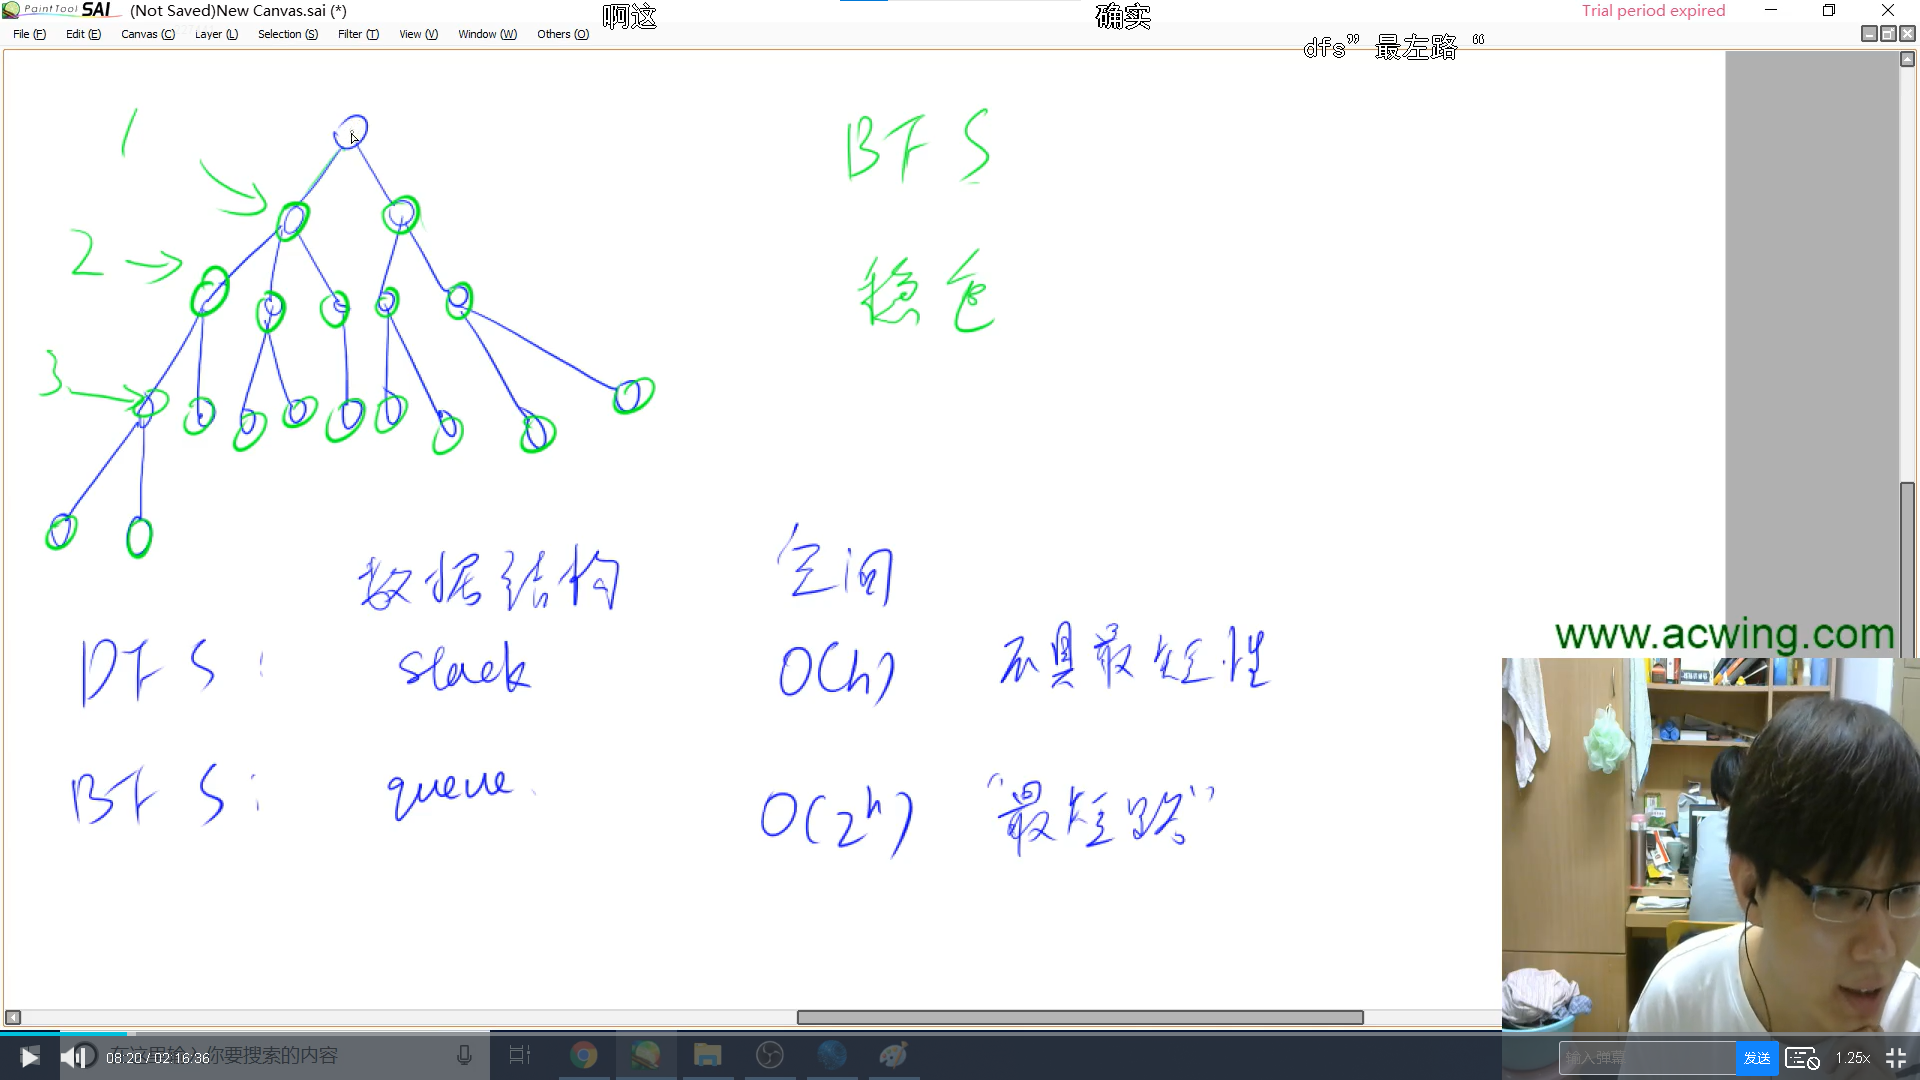 PaintTool SAI (Not Saved)New Canvas.sai (*)
啊这
确实
Trial period expired
File (F) Edit (E) Canvas (C) Layer (L) Selection (S) Filter (T) View (V) Window (W) Others (O)
dfs”最左路“
1
BFS
2
稳
3
数据结构 空间
www.acwing.com
DFS: stack O(h) 不具最短性
BFS: queue. O(2^h) “最短路”
08:20 / 02:16:36
在这里输入你要搜索的内容
输入弹幕
发送
1.25x